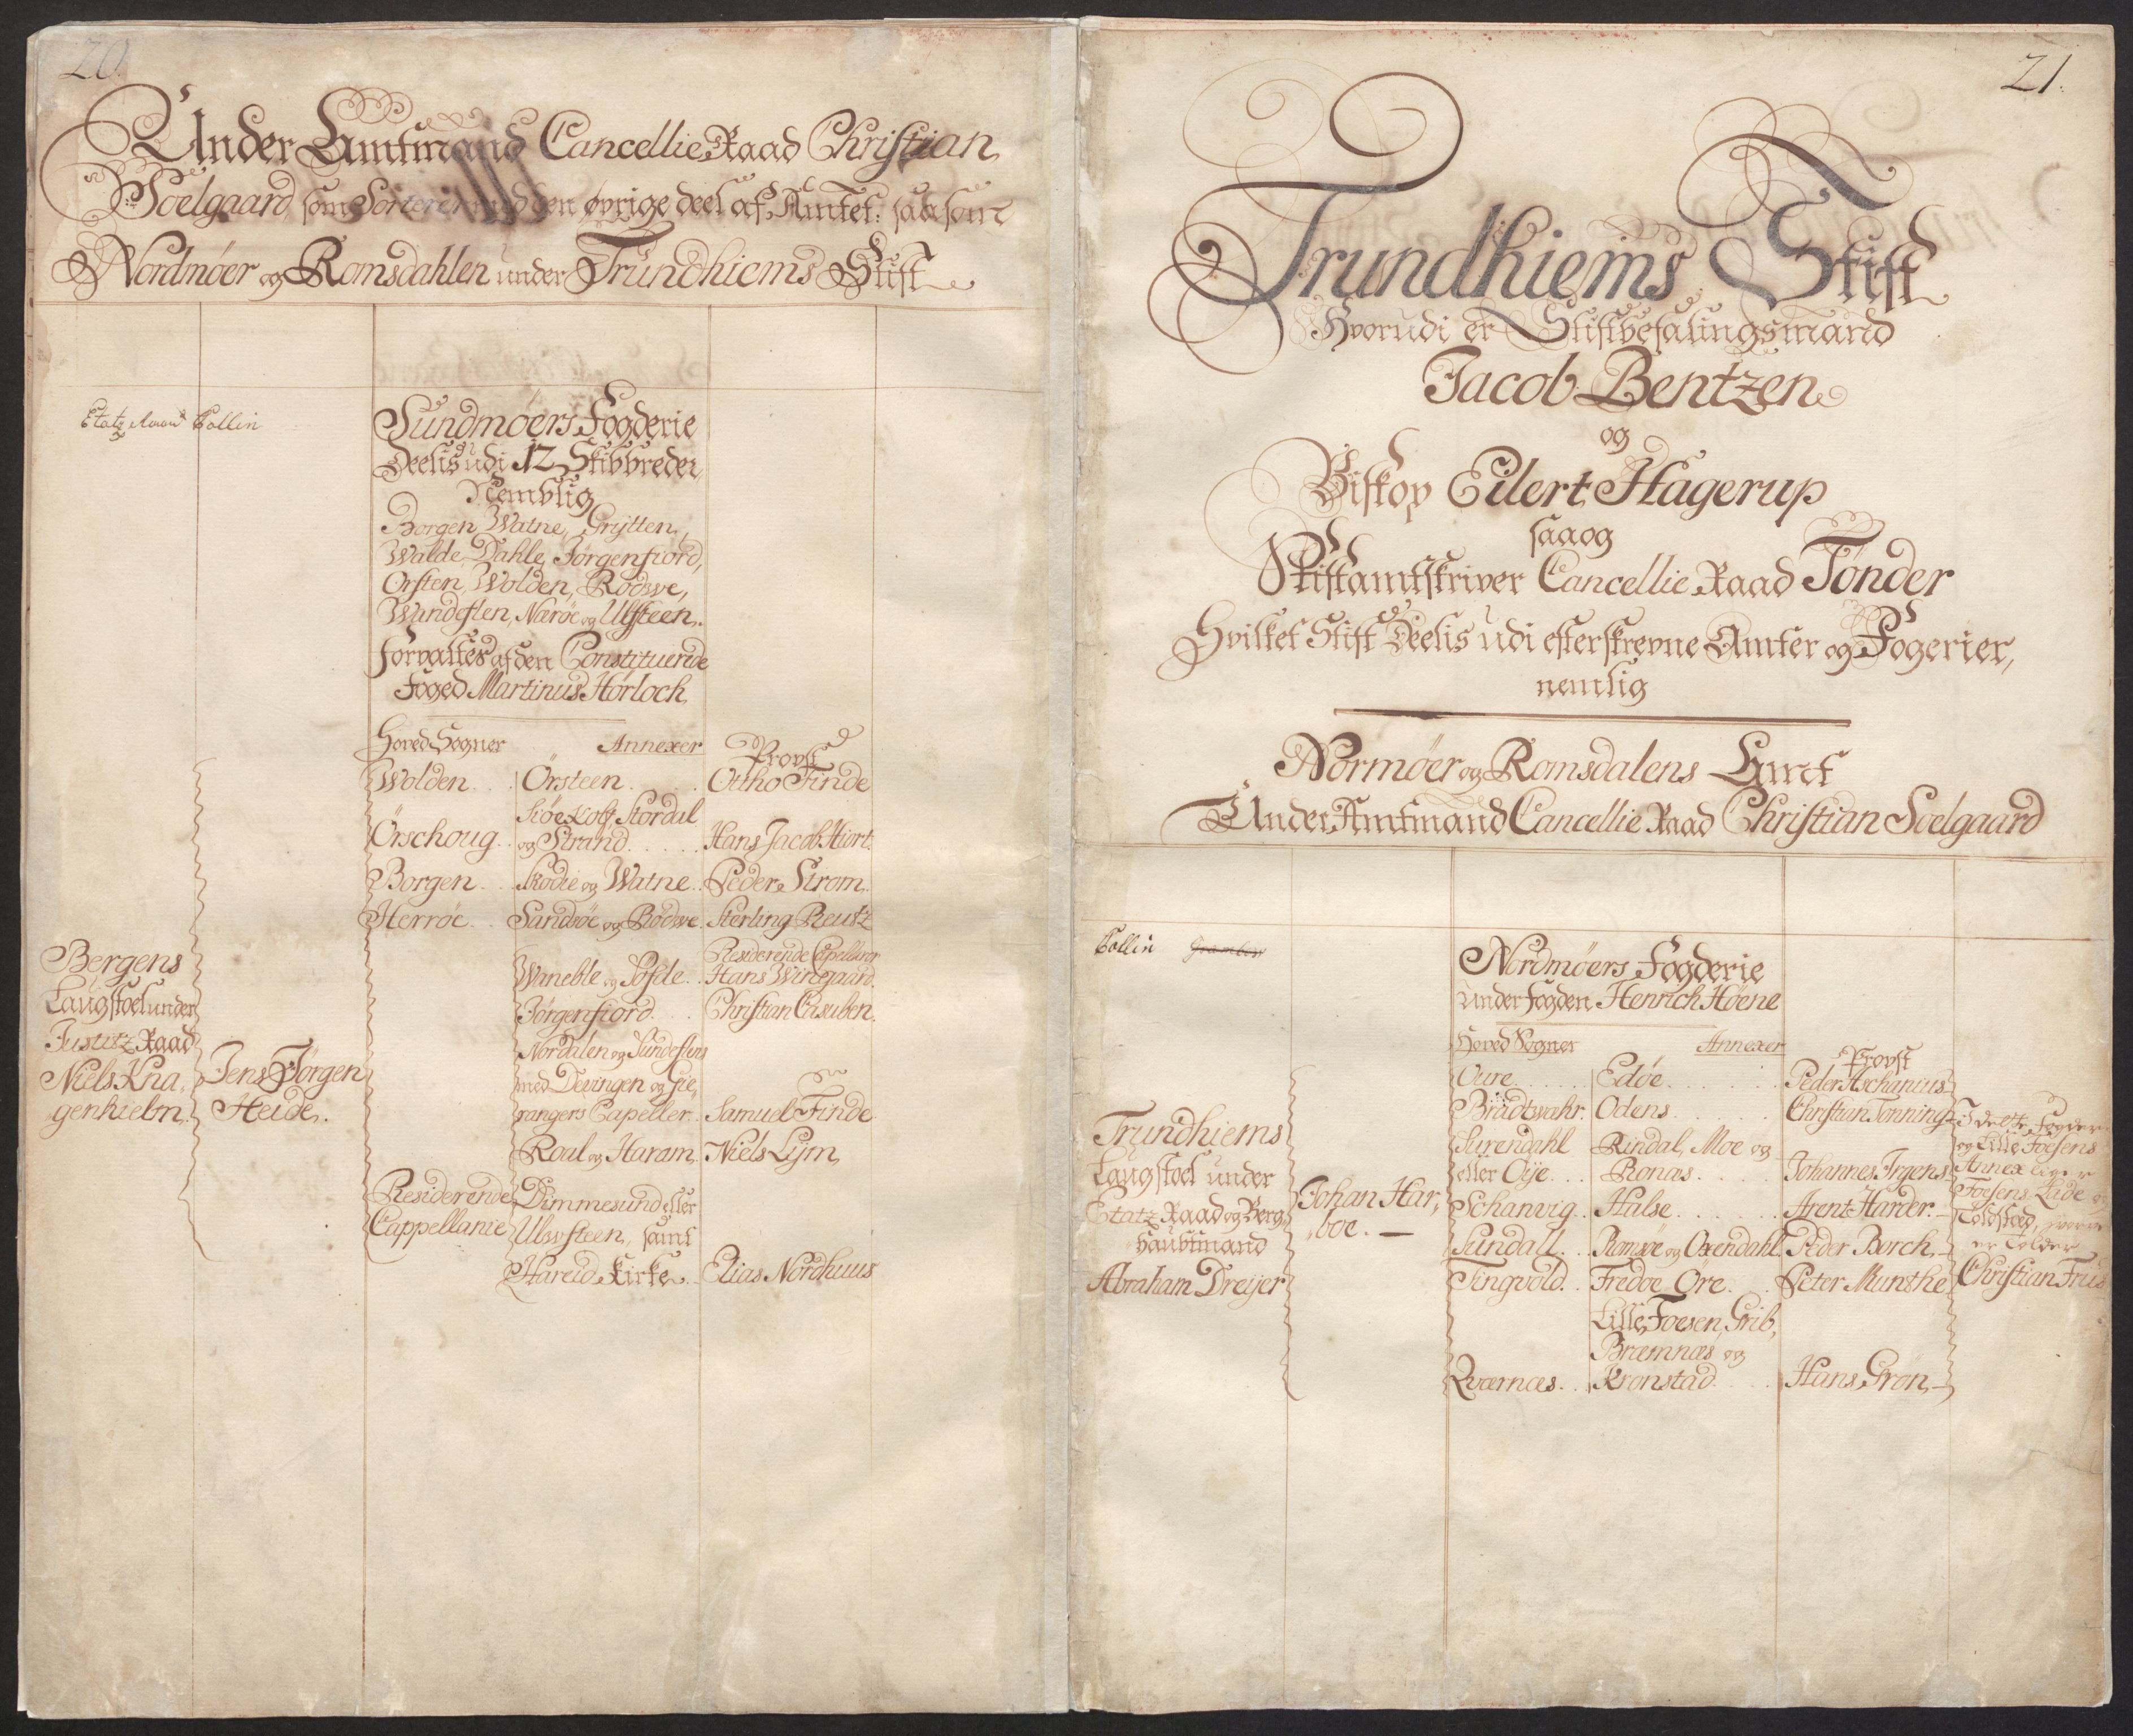 20.
Under Amtmand CancellieRaad Christian
Soelgaard som Sorterer med den øvrige deel af Amtet: saasom
Nordmøer og Romsdahlen under Trundhiems Stift
Etatz Raad Collin
Sundmøers Fogderie
Deelis udi 12 Skibbreder
Nemblig
Borgen, Watne, Grytten,
Walde, Dahle, Jørgenfiord,
Ørsten, Wolden, Rødwe,
Wandeflen, Narøe og Ulfsteen.
forvaltes af den Constituerde
Foged Martinus Hørloch
Hoved Sogner Annexer Provst
Wolden . . Örsteen . . Ottho Finde
Siøeholt, Stordal
Örschoug . . og Strand . . . . . Hans Jacob Hiort.
Borgen . . Skodie og Watne . . Peder Strøm.
Herrøe . . Sandsøe og Rødwe. Sterling Reutz
Residerende Capellaner
Waneble og Søfde . . Hans Winegaard.
Jørgenfiord . . . Christian Crsuben.
Nordalen og Sundeflens
med Devingen og Gie,
rangers Capeller . . Samuel Finde
Roal og Haram, Niels Lÿm,
Residerende Dimmesund eller
Cappellanie Ulwsteen, samt
Hareid Kirke . Elias Nordhuus
Bergens
Laugstoel under
Justitz Raad
Niels Kna,
genhielm.
Jens Jørgen
Heide.
21.
Trundhiems Stift
Hvorudi er Stiftbefalingsmand
Jacob Bentzen
og
Biskop Eilert Hagerup
saaog
Stiftamtskriver Cancellie Raad Tønder
Hvilket Stift Deelis udi efterskrevne Amter og Fogerier,
nemlig
Normøer og Romsdalens Amt
Under Amtmand Cancellie Raad Christian Soelgaard
Collin
Nordmøers Fogderie
under fogden Henrich Høene
Hoved Sogner Annexer Provst
Oure . . . . Edøe . . . . . Peder Aschanius
Bradtwahr. Odens . . . . Christian Tønning
Surendahl Rindal, Moe og
eller Øÿe . . . Bonas . . . . Johannes Jrgens
Schanvig . . Halse . . . . . . Arent Harder.
Sundall . . Romsøe og Oxendahl. Peder Borch,
Tingvold . . Fredøe Ore . . Peter Munthe
Lille Foesen, Grib,
Bræmnæs og
Qværnæs . . Kronstad . . . Hans Grøn,
Trundhiems
Laugstoel under
Etatz Raad og Berg,
haubtmand
Abraham Dreÿer
Johan Har,
boe. —
I dette Fogder
og Lille Foesens
Annex liger
Foesens Lade og
Toldsted, hvor
er Tolder
Christian Friis